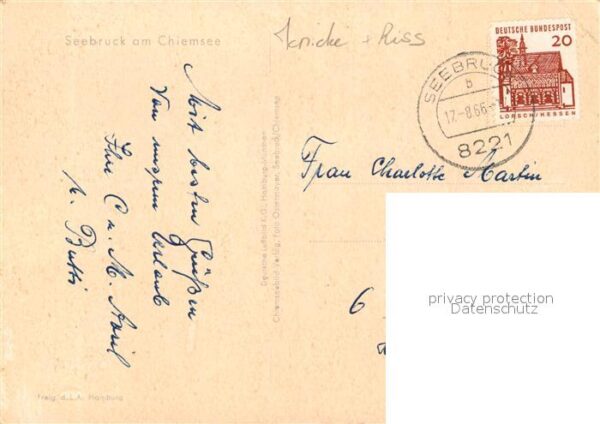 Seebruck am Chiemsee
Mit besten Grüßen
Von unserem Urlaub
Ihre C u. M. April
u. Butti
Freig. d. L.A. Hamburg
Deutsche Luftbild K.G., Hamburg-München
Chiemseebild Verlag, Foto Obermayer, Seebrod/Chiemsee
+ Riss
DEUTSCHE BUNDESPOST
20
LORSCH/HESSEN
SEEBRUCK
b
17.-8.66
8221
Frau Charlotte Martin
6
privacy protection
Datenschutz